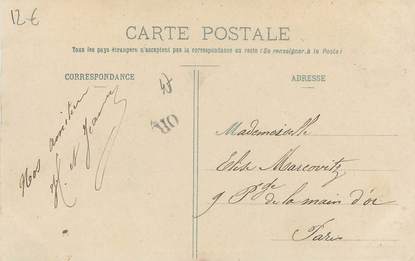 12 €
CARTE POSTALE
Tous les pays étrangers n'acceptent pas la correspondance au recto (Se renseigner à la Poste)
CORRESPONDANCE
ADRESSE
Nos amitiés
H. et Jeanne
OR
Mademoiselle
Elise Marcovitz
9 Pge de la main d'or
Paris